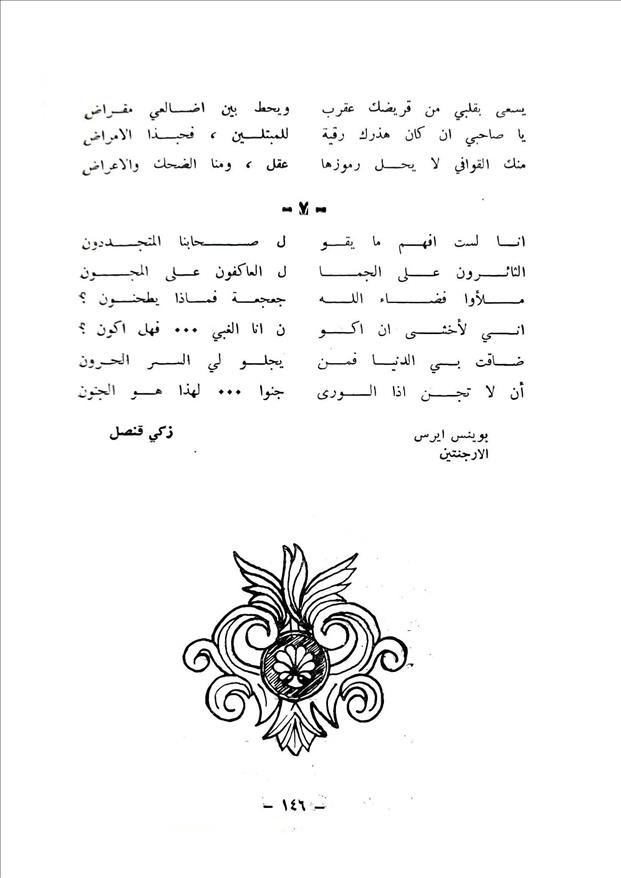 يسعى بقلبي من قريضك عقرب ويحط بين اضالعي مقراض
يا صاحبي ان كان هذرك رقية للمبتلين ، فحبذا الامراض
منك القوافي لا يحل رموزها عقل ، ومنا الضحك والاعراض
- ٧ -
انا لست افهم ما يقو ل صحابنا المتجددون
الثائرون على الجما ل العاكفون على المجون
ملأوا فضاء الله جعجعة فماذا يطحنون ؟
اني لأخشى ان اكو ن انا الغبي ... فهل اكون ؟
ضاقت بي الدنيا فمن يجلو لي السر الحرون
أن لا تجن اذا الورى جنوا ... لهذا هو الجنون
بوينس ايرس زكي قنصل
الارجنتين
- ١٤٦ -